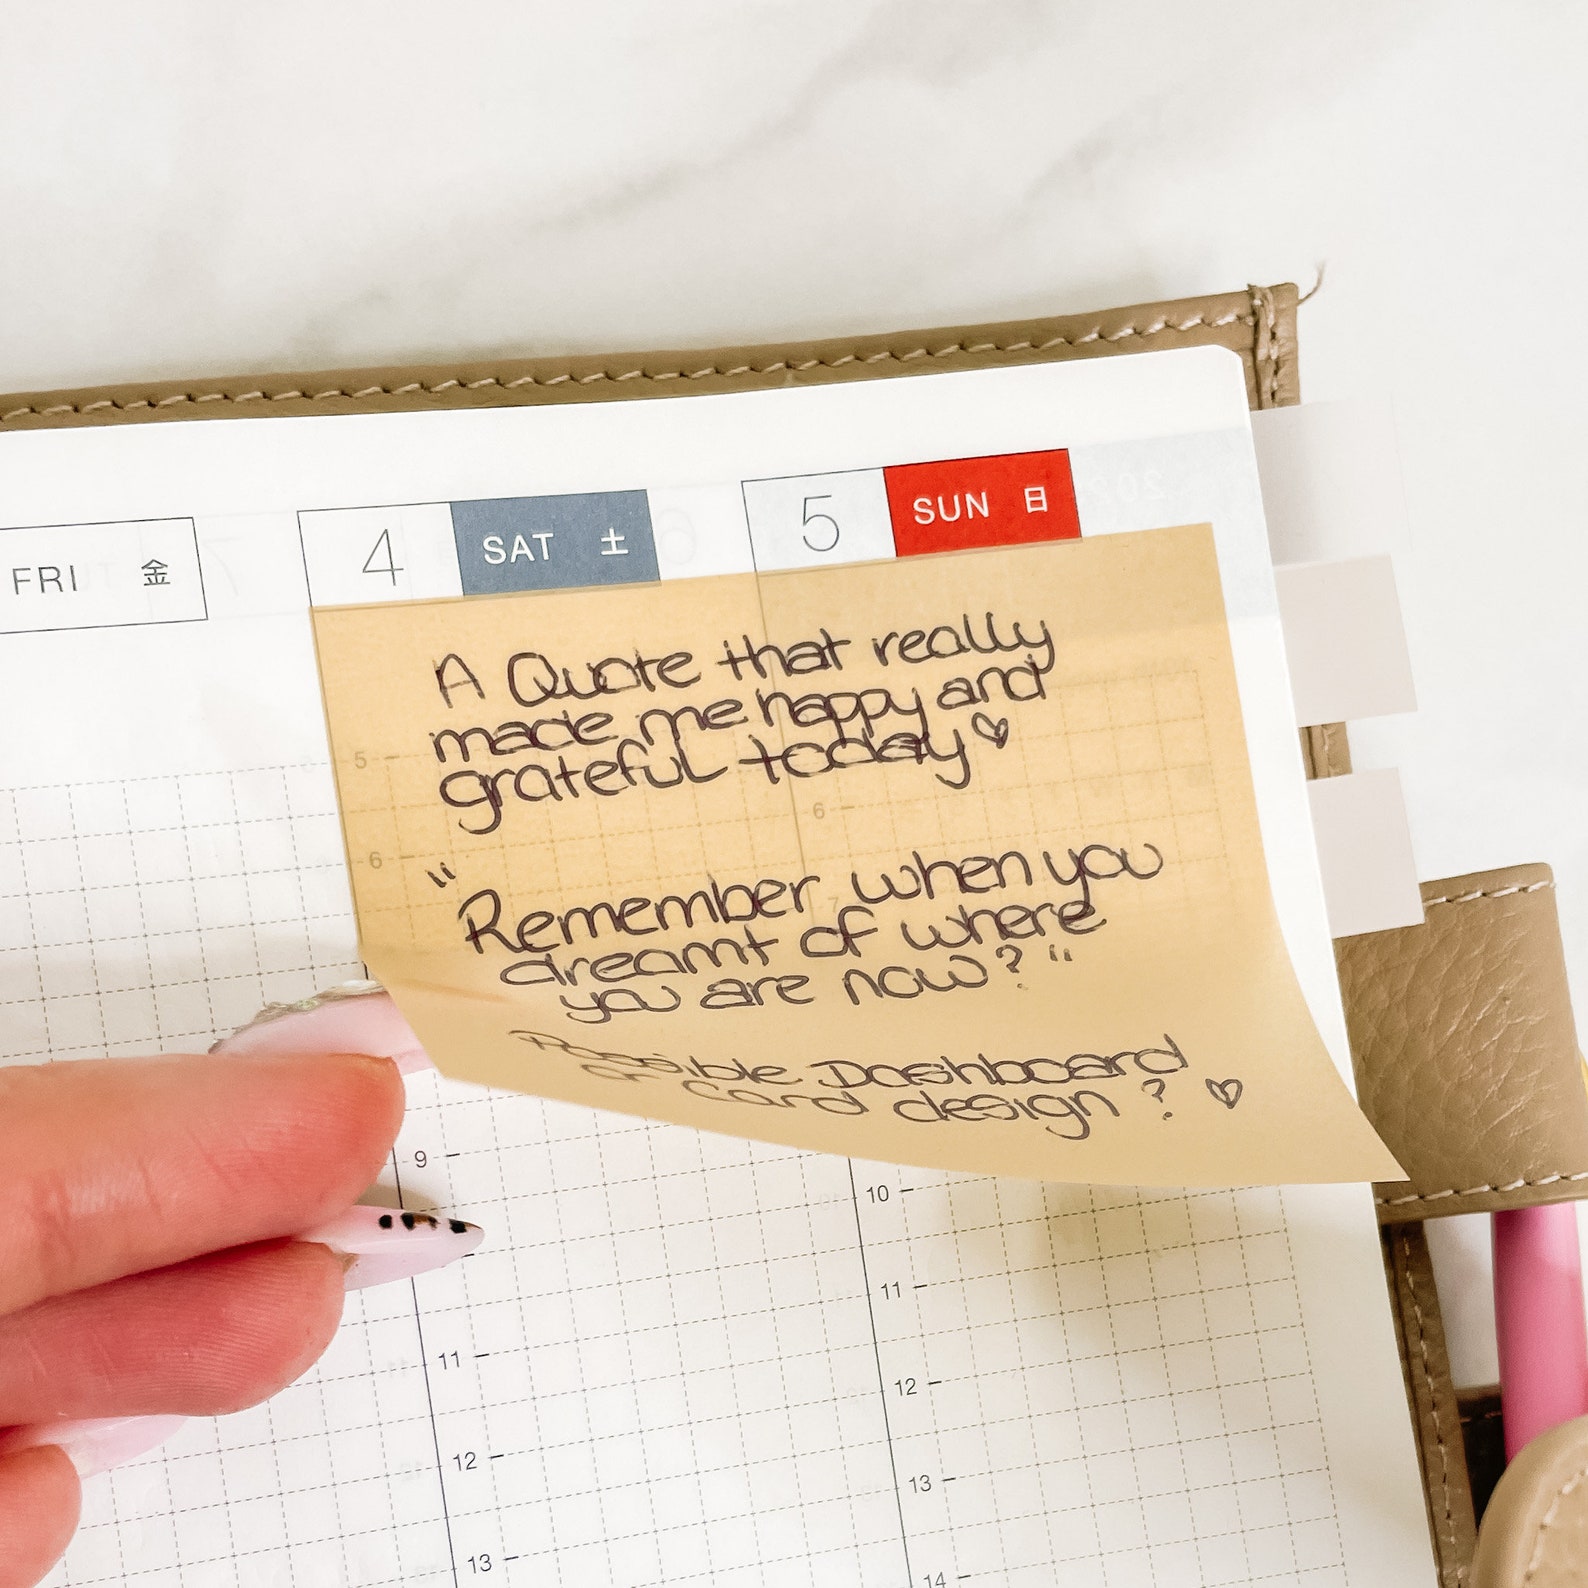 FRI 金
4 SAT 土
5 SUN 日
A Quote that really
made me happy and
grateful today
"Remember when you
dreamt of where
you are now?"
Possible Dashboard
or Card design?
5
6
9
11
12
13
6
7
10
11
12
13
14